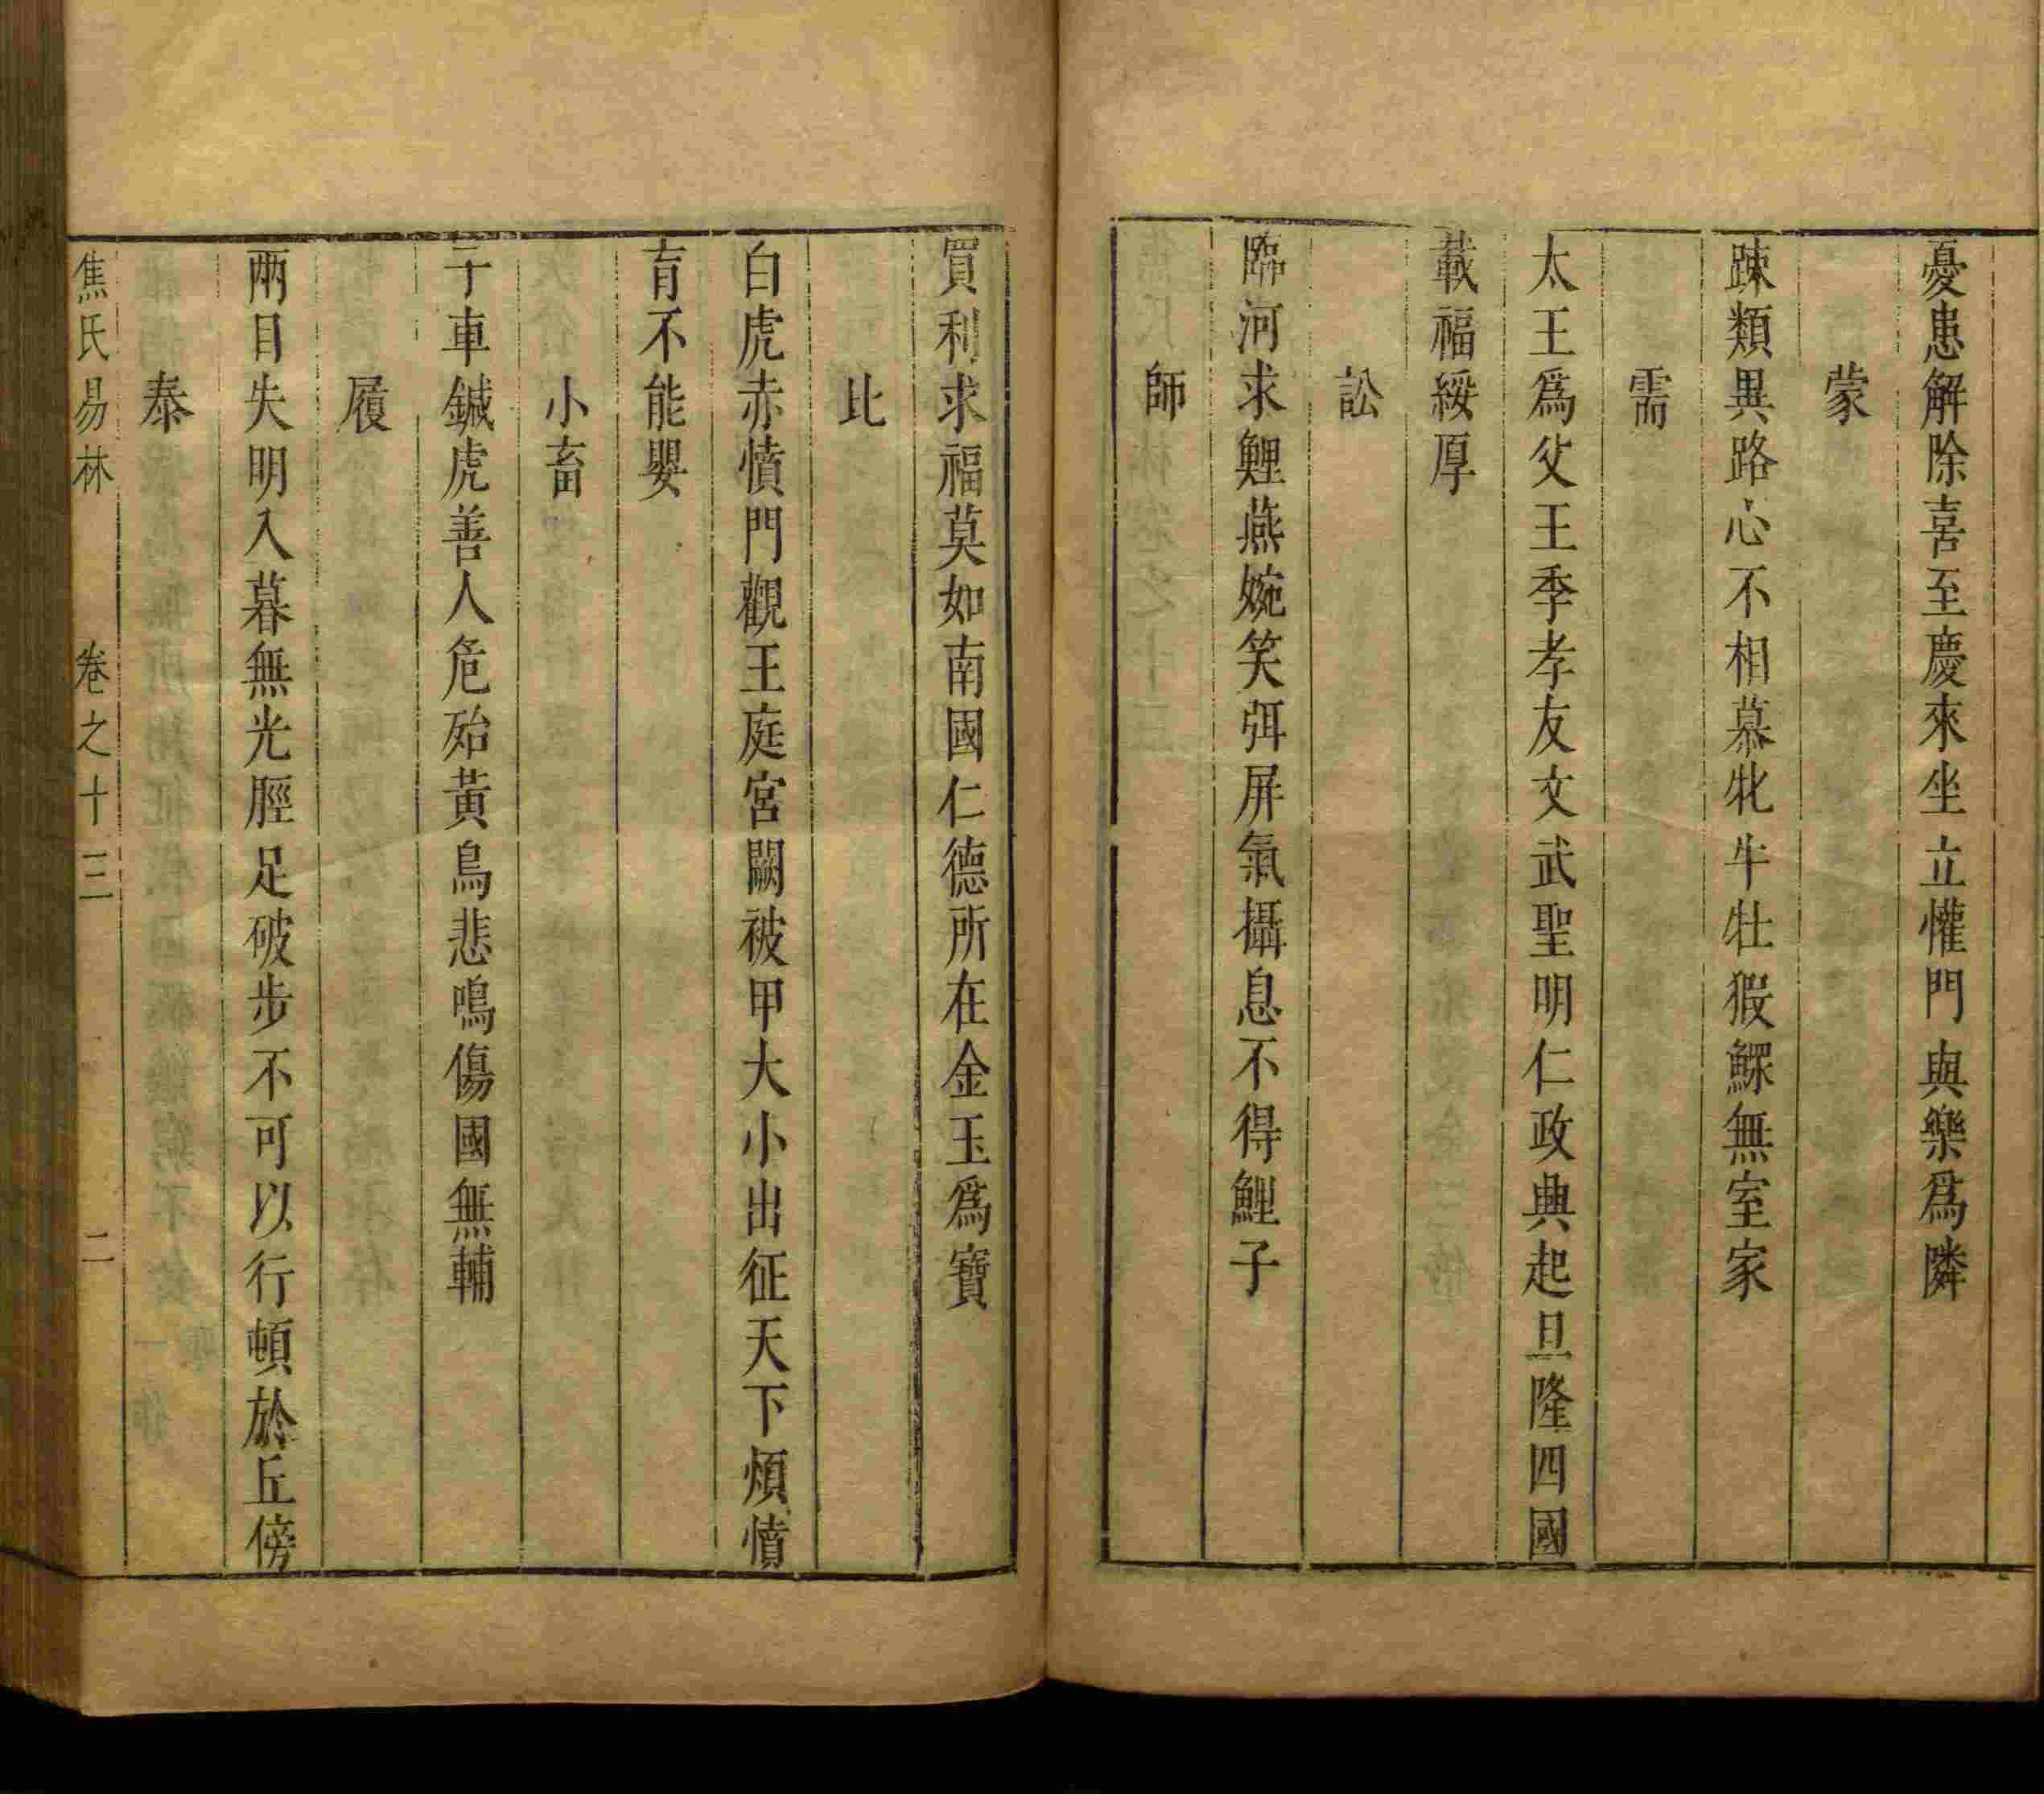 憂患解除喜至慶來坐立懽門與樂爲隣
蒙
踈類異路心不相慕牝牛牡猳鰥無室家
需
太王爲父王季孝友文武聖明仁政興起旦隆四國
載福綏厚
訟
臨河求鯉燕婉笑弭屏氣攝息不得鯉子
師
買利求福莫如南國仁德所在金玉爲寶
比
白虎赤憤門觀王庭宮闕被甲大小出征天下煩憤
育不能嬰
小畜
子車鍼虎善人危殆黃鳥悲鳴傷國無輔
履
兩目失明入暮無光脛足破步不可以行頓於丘傍
泰
焦氏易林 卷之十三 二